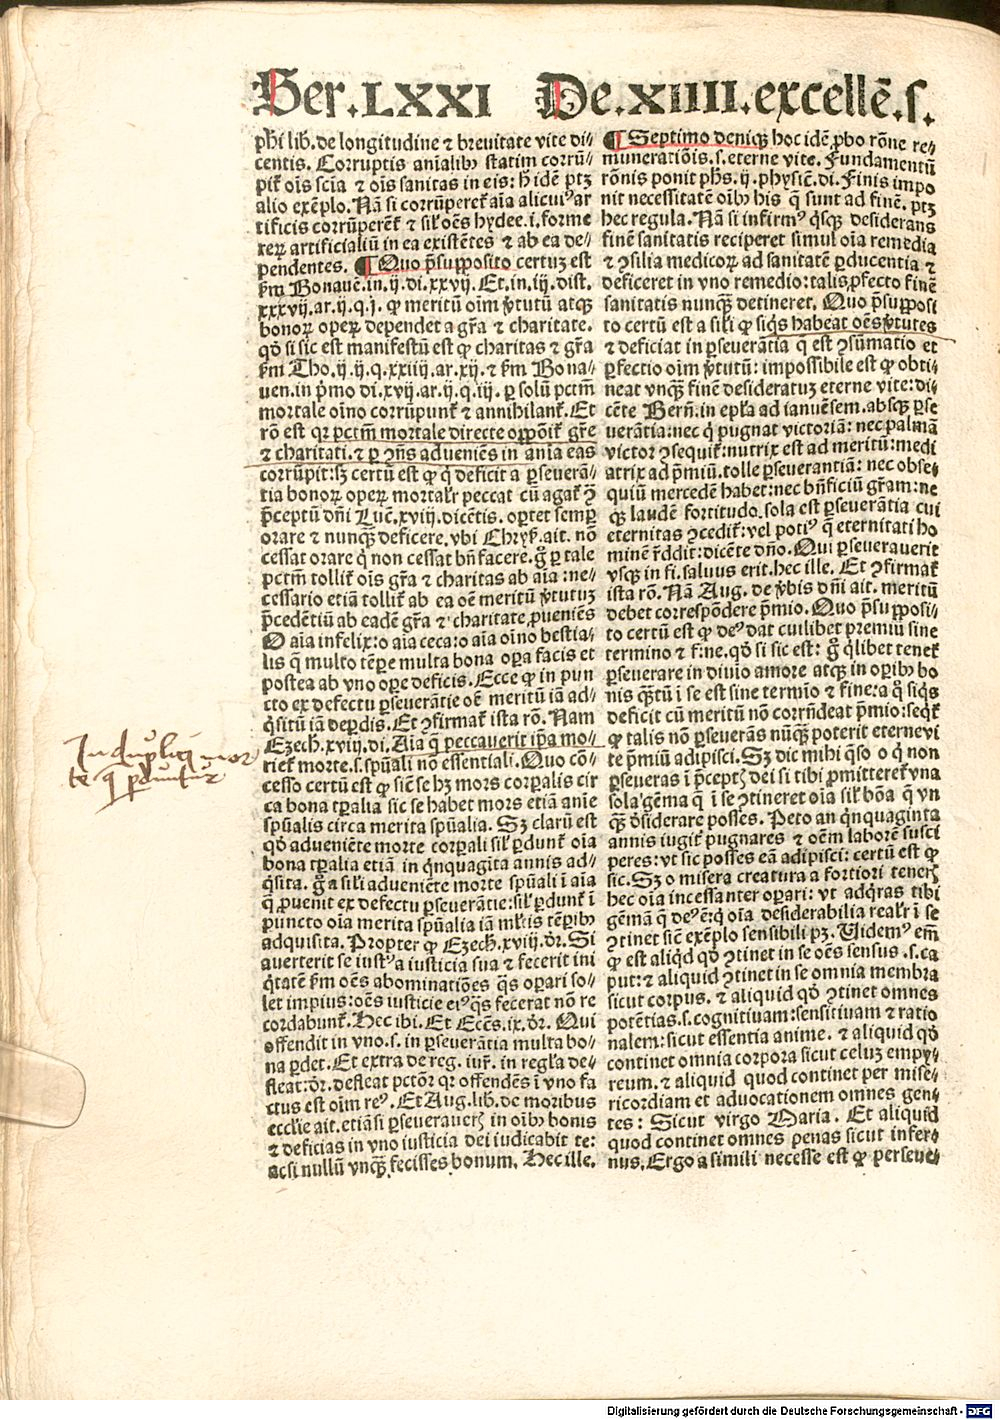 Ser.LXXI De.XIIII.excellẽ.s.
phi lib.de longitudine ⁊ breuitate vite di-
centis. Corruptis aĩalibꝰ statim corrũ-
pit̃ oĩs scĩa ⁊ oĩs sanitas in eis: h̃ idẽ ptꝫ
alio exẽplo. Nã si corrũperet̃ aĩa alicuiꝰ ar
tificis corrũperent̃ ⁊ sil̃ oẽs hydee.i.forme
reꝝ artificialiũ in ea existẽtes ⁊ ab ea de-
pendentes. ¶ Quo p̃supposito certuꝫ est
ẜm Bonauẽ.in.ij.di.xxvij. Et.in.iij.dist.
xxxvij.ar.ij.q.j. ꝙ meritũ oĩm v̾tutũ atqꝫ
bonoꝝ opeꝝ dependet a gr̃a ⁊ charitate.
qď si sic est manifestũ est ꝙ charitas ⁊ gr̃a
ẜm Tho.ij.ij.q.xxiiij.ar.xij. ⁊ ẜm Bona-
uen.in p̃mo di.xvij.ar.ij.q.iij. ꝑ solũ pctm̃
mortale oĩno corrũpunt̃ ⁊ annihilant̃. Et
rõ est qꝛ pctm̃ mortale directe oppõit̃ gr̃e
⁊ charitati.⁊ ꝑ ↄ̃ns adueniẽs in aĩa eas
corrũpit: sꝫ certũ est ꝙ q̇ deficit a ꝑseuerã-
tia bonoꝝ opeꝝ mortalr̃ peccat cũ agat̃ ↄ̃
p̃ceptũ dñi Luc̃.xviij.dicẽtis. oꝑtet semꝑ
orare ⁊ nunqꝫ deficere. vbi Chryſ. ait. nõ
cessat orare q̇ non cessat bñ facere. g̃ ꝑ tale
pctm̃ tollit̃ oĩs gr̃a ⁊ charitas ab aĩa : ne-
cessario etiã tollit̃ ab ea oẽ meritũ v̾tutuꝫ
p̃cedẽtiũ ab eadẽ gr̃a ⁊ charitate ꝓueniẽs
O aĩa infelix: o aĩa ceca: o aĩa oĩno bestia-
lis q̃ multo tẽpe multa bona oꝑa facis et
postea ab vno oꝑe deficis. Ecce ꝙ in pun
cto ex defectu ꝑseuerãtie oẽ meritũ iã ad-
q̇situ iã deꝑdis. Et ↄfirmat̃ ista rõ. Nam
Ezech.xviij.di. Aĩa q̃ peccauerit ip̃a mo-
riet̃ morte.s.spũali nõ essentiali. Quo cõ-
cesso certũ est ꝙ sic̃ se hꝫ mors corꝑalis cir
ca bona tꝑalia sic se habet mors etiã anie
spũalis circa merita spũalia. Sꝫ clarũ est
qď adueniẽte morte corꝑali sil̃ ꝑdunt̃ oĩa
bona tꝑalia etiã in q̇nquagĩta annis ad-
q̇sita. g̃ a sili adueniẽte morte spũali ĩ aĩa
q̃ ꝓuenit ex defectu ꝑseuerãtie: sil̃ ꝑdunt̃ ĩ
puncto oĩa merita spũalia iã ml̃tis tẽꝑibꝰ
adquisita. Propter ꝙ Ezech.xviij.ďr. Si
auerterit se iustꝰ a iusticia sua ⁊ fecerit ini
q̇tatẽ ẜm oẽs abominatiões q̃s oꝑari so-
let impius: oẽs iusticie eiꝰ q̃s fecerat nõ re
cordabunt̃. Hec ibi. Et Ecc̃s.ix.ďr. Qui
offendit in vno.s. in ꝑseuerãtia multa bo-
na ꝑdet. Et extra de reg. iur̃. in regl̃a de-
fleat:ďr. defleat pctõr qꝛ offendẽs ĩ vno fa
ctus est oĩm reꝰ. Et Aug.lib.de moribus
ecclie ait.etiã si ꝑseuerauerꝭ in oĩbꝰ bonis
⁊ deficias in vno iusticia dei iudicabit te:
acsi nullũ vnqꝫ fecisses bonum. Hec ille.
¶ Septimo deniqꝫ hoc idẽ ꝓbo rõne re-
muneratiõis.s.eterne vite. Fundamentũ
rõnis ponit phs.ij.physic̃.di. Finis impo
nit necessitatẽ oĩbꝰ his q̃ sunt ad finẽ. ptꝫ
hec regula. Nã si infirmꝰ q̇sqꝫ desiderans
finẽ sanitatis reciperet simul oĩa remedia
⁊ ↄsilia medicoꝝ ad sanitatẽ ꝑducentia ⁊
deficeret in vno remedio: talis ꝓfecto finẽ
sanitatis nunqꝫ detineret. Quo p̃supposi
to certũ est a sili ꝙ siq̇s habeat oẽs v̾tutes
⁊ deficiat in ꝑseuerãtia q̃ est ↄsũmatio et
ꝑfectio oĩm v̾tutũ: impossibile est ꝙ obti-
neat vnqꝫ finẽ desideratuꝫ eterne vite: di-
cẽte Bern̄.in epl̃a ad ianuẽsem.absqꝫ ꝑse
uerãtia: nec q̇ pugnat victoriã: nec palmã
victor ↄsequit̃: nutrix est ad meritũ: medi
atrix ad p̃miũ. tolle ꝑseuerantiã: nec obse-
quiũ mercedẽ habet: nec bñficiũ gr̃am: ne
qꝫ laudẽ fortitudo. sola est ꝑseuerãtia cui
eternitas ↄcedit̃: vel potiꝰ q̃ eternitati ho
minẽ r̃ddit: dicẽte dño. Qui ꝑseuerauerit
vsqꝫ in fi.saluus erit.hec ille. Et ↄfirmat̃
ista rõ. Nã Aug. de v̾bis dñi ait. meritũ
debet correspõdere p̃mio. Quo p̃supposi-
to certũ est ꝙ deꝰ dat cuilibet premiũ sine
termino ⁊ fine.qď si sic est: g̃ q̇libet tenet̃
ꝑseuerare in diuĩo amore atqꝫ in oꝑibꝰ bo
nis qꝫtũ ĩ se est sine termĩo ⁊ fine: a q̊ siq̇s
deficit cũ meritũ nõ corrñdeat p̃mio: seqt̃
ꝙ talis nõ ꝑseuerãs nũqꝫ poterit eterne vi
te p̃miũ adipisci. Sꝫ dic mihi q̃so o q̇ non
ꝑseueras ĩ p̃ceptꝭ dei si tibi ꝓmitteret̃ vna
sola gẽma q̃ ĩ se ↄtineret oĩa sil̃ bõa q̃ vn
qꝫ ď̃siderare posses. Peto an q̇nquaginta
annis iugit̃ pugnares ⁊ oẽm laborẽ susci
peres: vt sic posses eã adipisci: certũ est ꝙ
sic. Sꝫ o misera creatura a fortiori tenerꝭ
hec oĩa incessanter oꝑari: vt adq̇ras tibi
gẽmã q̃ deꝰ ẽ: q̇ oĩa desiderabilia realr̃ ĩ se
ↄtinet sic̃ exẽplo sensibili pꝫ. Videmꝰ em̃
ꝙ est aliq̇d qď ↄtinet in se oẽs sensus .s.ca
put: ⁊ aliquid ↄtinet in se omnia membra
sicut corpus. ⁊ aliquid qď ↄtinet omnes
potẽtias.s.cognitiuam: sensitiuam ⁊ ratio
nalem: sicut essentia anime. ⁊ aliquid qď
continet omnia corpora sicut celuꝫ empy-
reum.⁊ aliquid quod continet per mise-
ricordiam et aduocationem omnes gen-
tes: Sicut virgo Maria. Et aliquid
quod continet omnes penas sicut infer-
nus. Ergo a simili necesse est ꝙ perseue-
Digitalisierung gefördert durch die Deutsche Forschungsgemeinschaft - DFG